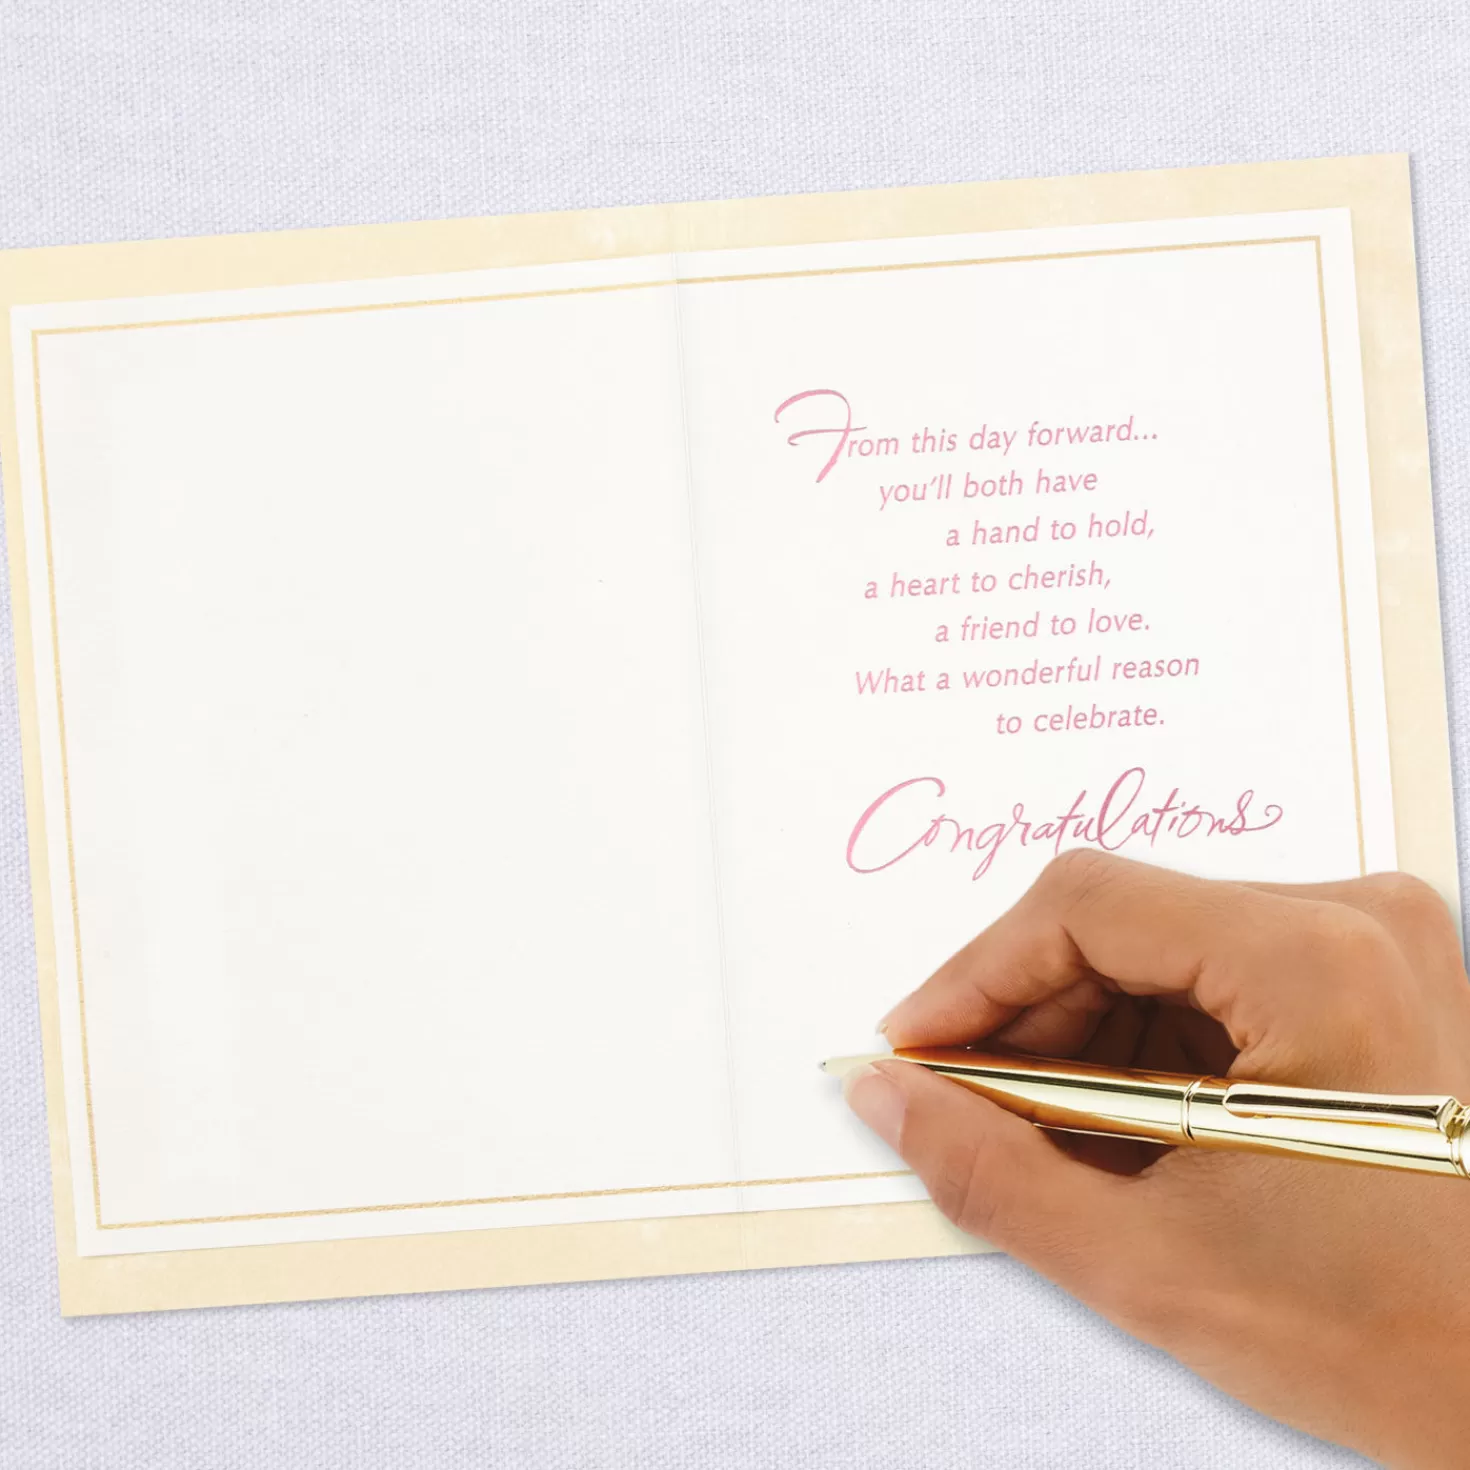 From this day forward...
you'll both have
a hand to hold,
a heart to cherish,
a friend to love.
What a wonderful reason
to celebrate.
Congratulations